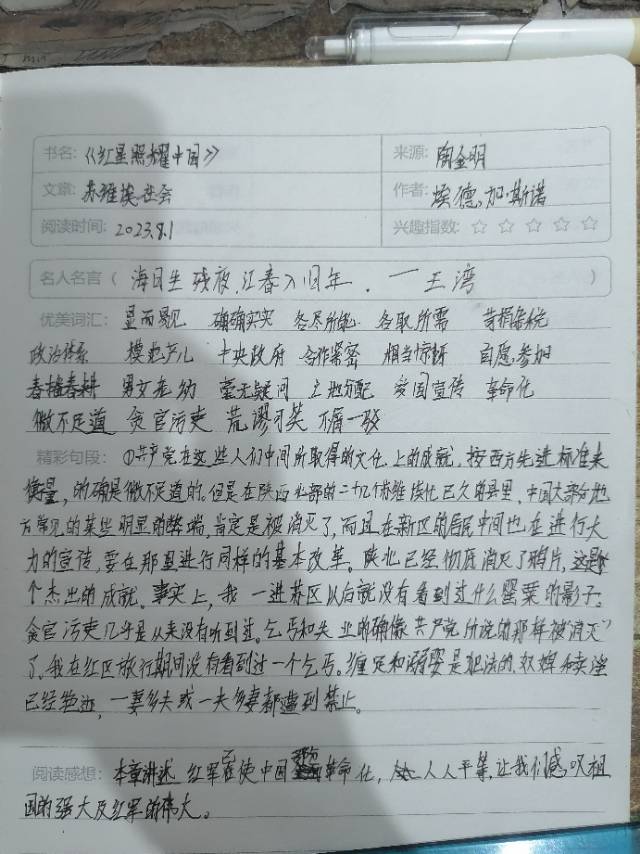 书名: 《红星照耀中国》 来源: 陶金明
文章: 苏维埃社会 作者: 埃德加·斯诺
阅读时间: 2023.8.1 兴趣指数: ☆ ☆ ☆ ☆ ☆
名人名言 ( 海日生残夜,江春入旧年. 一王湾 )
优美词汇: 显而易见 确确实实 各尽所能 各取所需 苛捐杂税
政治体系 模范产儿 中央政府 合作紧密 相当惊讶 自愿参加
春播春耕 男女老幼 毫无疑问 土地分配 爱国宣传 革命化
微不足道 贪官污吏 荒谬可笑 不屑一
精彩句段: ①共产党在这些人们中间所取得的文化上的成就,按西方先进标准来
衡量,的确是微不足道的。但是在陕西北部的二十几个苏维埃化已久的县里,中国大部分地
方常见的某些明显的弊端,肯定是被消灭了,而且在新区的居民中间也在进行大
力的宣传,要在那里进行同样的基本改革。陕北已经彻底消灭了鸦片,这是
个杰出的成就。事实上,我一进苏区以后就没有看到过什么罂粟的影子。
贪官污吏几乎是从来没有听到过。乞丐和失业的确像共产党所说的那样被“消灭”
了,我在红区旅行期间没有看到过一个乞丐。缠足和溺婴是犯法的,奴婢和卖淫
已经绝迹,一妻多夫或一夫多妻都遭到禁止。
阅读感想: 本章讲述红军已在使中国部分革命化,人人平等,让我们感叹祖
国的强大及红军的伟大。